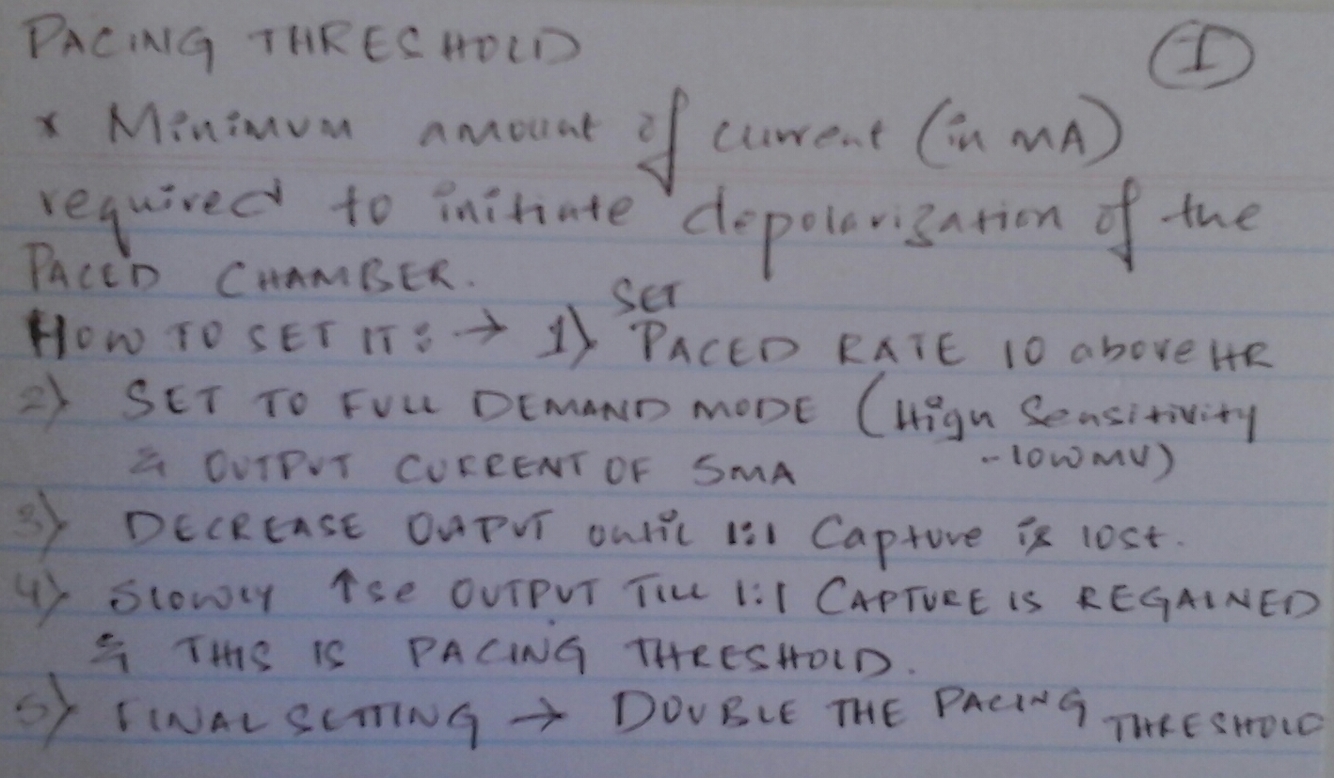 PACING THRESHOLD
I
* Minimum amount of current (in mA)
required to initiate depolarization of the
PACED CHAMBER.
SET
HOW TO SET IT: → 1) PACED RATE 10 above HR
2) SET TO FULL DEMAND MODE (High Sensitivity
& OUTPUT CURRENT OF 5MA
- low mV)
3) DECREASE OUTPUT until 1:1 Capture is lost.
4) Slowly ↑se OUTPUT TILL 1:1 CAPTURE IS REGAINED
& THIS IS PACING THRESHOLD.
5) FINAL SETTING → DOUBLE THE PACING THRESHOLD